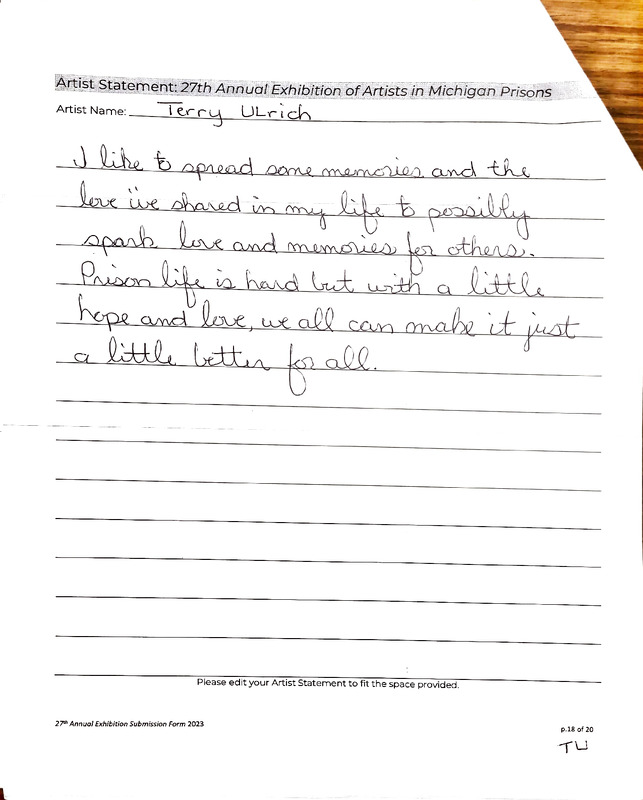 Artist Statement: 27th Annual Exhibition of Artists in Michigan Prisons
Artist Name: Terry ULrich
I like to spread some memories and the
love i've shared in my life to possilby
spark love and memories for others.
Prison life is hard but with a little
hope and love, we all can make it just
a little better for all.
Please edit your Artist Statement to fit the space provided.
27th Annual Exhibition Submission Form 2023
p.18 of 20
TU